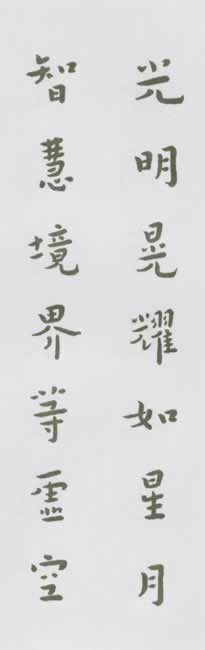 光明晃耀如星月
智慧境界等虛空